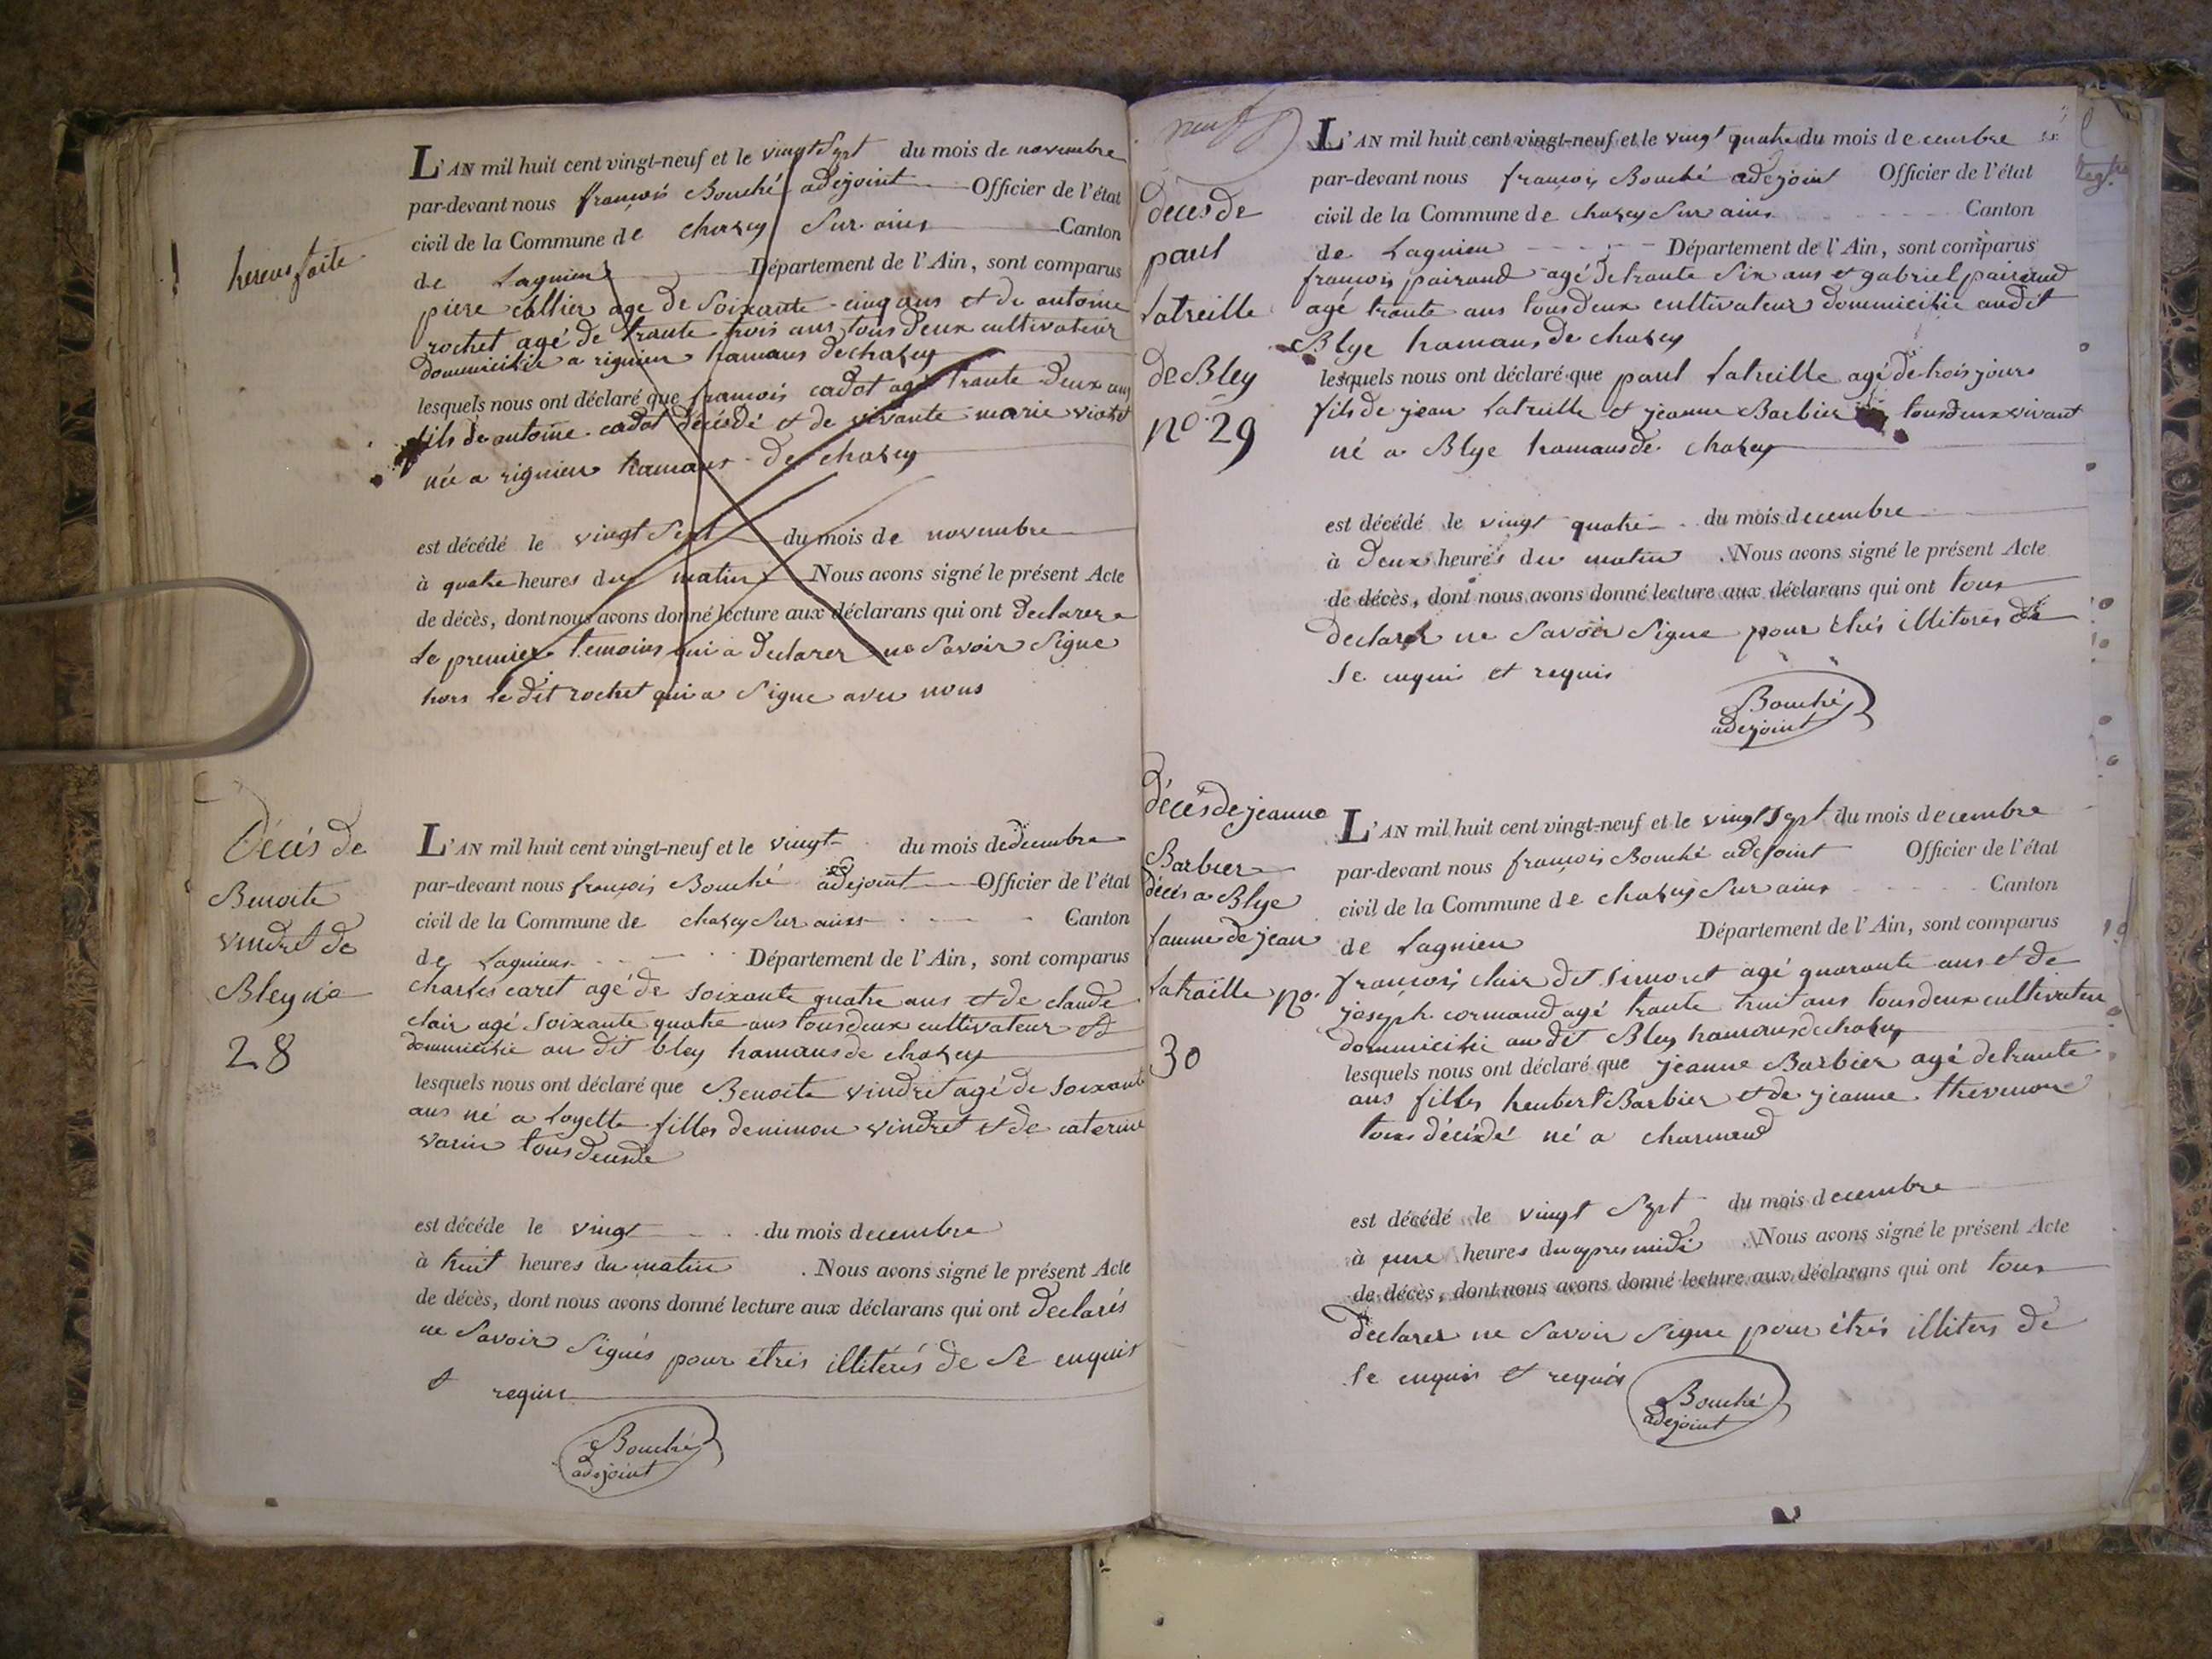 hereus faite
L'AN mil huit cent vingt-neuf et le vingt Sept du mois de novembre
par-devant nous françois Bouché adejoint Officier de l'état
civil de la Commune de chazey Sur ains Canton
de Lagnieu Département de l'Ain, sont comparus
piere age de Soixante cinq ans et de antoine
rochet agé de trante trois ans tous deux cultivateur
dommicihie a rignieu hamaus de chazey
lesquels nous ont déclaré que françois cadot agé trante deux ans
fils de antoine cadot décédé et de vivante marie
née a rignieu hamaus de chazey
est décédé le vingt Sept du mois de novembre
à quatre heures du matin Nous avons signé le présent Acte
de décès, dont nous avons donné lecture aux déclarans qui ont declarer
Le premier temoins qui a declarer ne Savoir Signe
hors le dit rochet qui a Signe avec nous
Décès de
Benoite
vindret de
Bley no
28
L'AN mil huit cent vingt-neuf et le vingt du mois de decembre
par-devant nous françois Bouché adejoint Officier de l'état
civil de la Commune de chazey Sur ains Canton
de Lagnieus Département de l'Ain, sont comparus
charles caret agé de soixante quatre ans et de claude
clair agé soixante quatre ans tous deux cultivateur
dommicihie au dit bley hamaus de chazey
lesquels nous ont déclaré que Benoite vindret agé de soixante
ans né a Loyette filles de nimou vindret et de caterine
varin tous decede
est décéde le vingt du mois decembre
à huit heures du matin . Nous avons signé le présent Acte
de décès, dont nous avons donné lecture aux déclarans qui ont declarés
ne Savoir Signés pour étrés illitérés de Se enquis
et requis
Bouché
adejoint
décès de
paul
Latreille
de Bley
no. 29
L'AN mil huit cent vingt-neuf et le vingt quatre du mois decembre
par-devant nous françois Bouché adejoint Officier de l'état
civil de la Commune de chazey Sur ains Canton
de Lagnieu Département de l'Ain, sont comparus
françois pairaud agé de trante Six ans et gabriel pairaud
agé trante ans tous deux cultivateur dommicihie audit
Blye hamaus de chazey
lesquels nous ont déclaré que paul Latreille agé de trois jours
fils de jean Latreille et jeanne Barbier tous deux vivant
né a Blye hamaus de chazey
est décédé le vingt quatre du mois decembre
à deux heures du matin . Nous avons signé le présent Acte
de décès, dont nous avons donné lecture aux déclarans qui ont tous
declarer ne Savoir Signe pour étrés illitérés de
Se enquis et requis
Bouché
adejoint
décès de jeanne
Barbier
décès a Blye
famme de jean
Latraille no.
30
L'AN mil huit cent vingt-neuf et le vingt Sept du mois decembre
par-devant nous françois Bouché adejoint Officier de l'état
civil de la Commune de chazey Sur ains Canton
de Lagnieu Département de l'Ain, sont comparus
françois clair dit simonet agé quarante ans et de
joseph cormand agé trante huit ans tous deux cultivateur
dommicihie au dit Bley hamaus de chazey
lesquels nous ont déclaré que jeanne Barbier agé de trante
ans filles heubert Barbier et de jeanne thevenon
tous décédé né a charnaud
est décédé le vingt Sept du mois decembre
à une heures du apres midi . Nous avons signé le présent Acte
de décès, dont nous avons donné lecture aux déclarans qui ont tous
declarer ne Savoir Signe pour étrés illiters de
Se enquis et requis
Bouché
adejoint